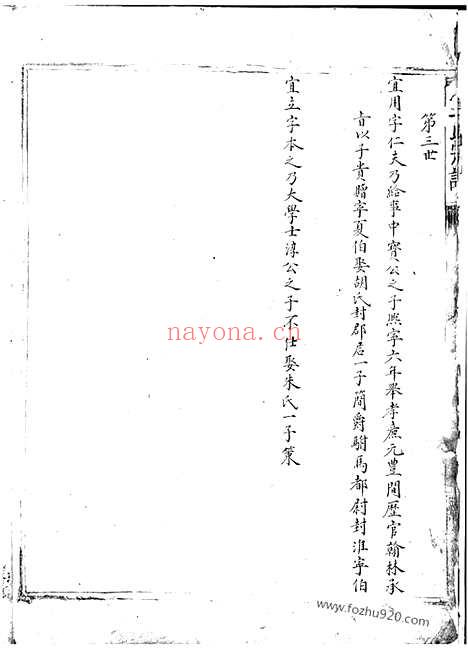 第三世
宜用字仁夫乃給事中寶公之子熙寧六年舉孝廉元豐間歷官翰林承
旨以子貴贈寧夏伯娶胡氏封郡君一子簡爵駙馬都尉封淮寧伯
宜立字本之乃大學士淳公之子不仕娶朱氏一子策
nayona.cn
www.fozhu920.com